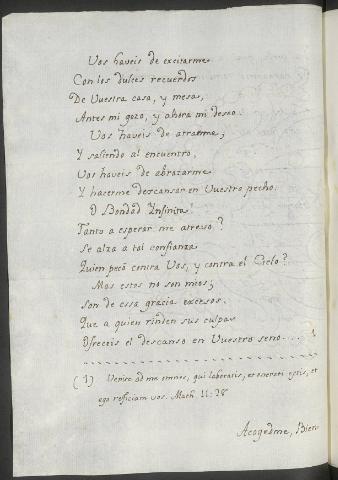 Vos haveis de excitarme
Con los dulces recuerdos
De Vuestra casa, y mesa,
Antes mi gozo, y ahora mi deseo.
Vos haveis de atraerme,
Y saliendo al encuentro,
Vos haveis de abrazarme
Y hacerme descansar en Vuestro pecho.
O Bondad Ynfinita!
Tanto a esperar me atrevo?
Se alza a tal confianza
Quien pecó contra Vos, y contra el Cielo?
Mas estos no son mios;
Son de essa gracia excesos.
Que a quien rinden sus culpas
Ofreceis el descanso en Vuestro seno....
(1) Venite ad me omnes, qui laboratis, et onerati estis, et
ego reficiam vos. Math. 11:28
Acogedme, Bien